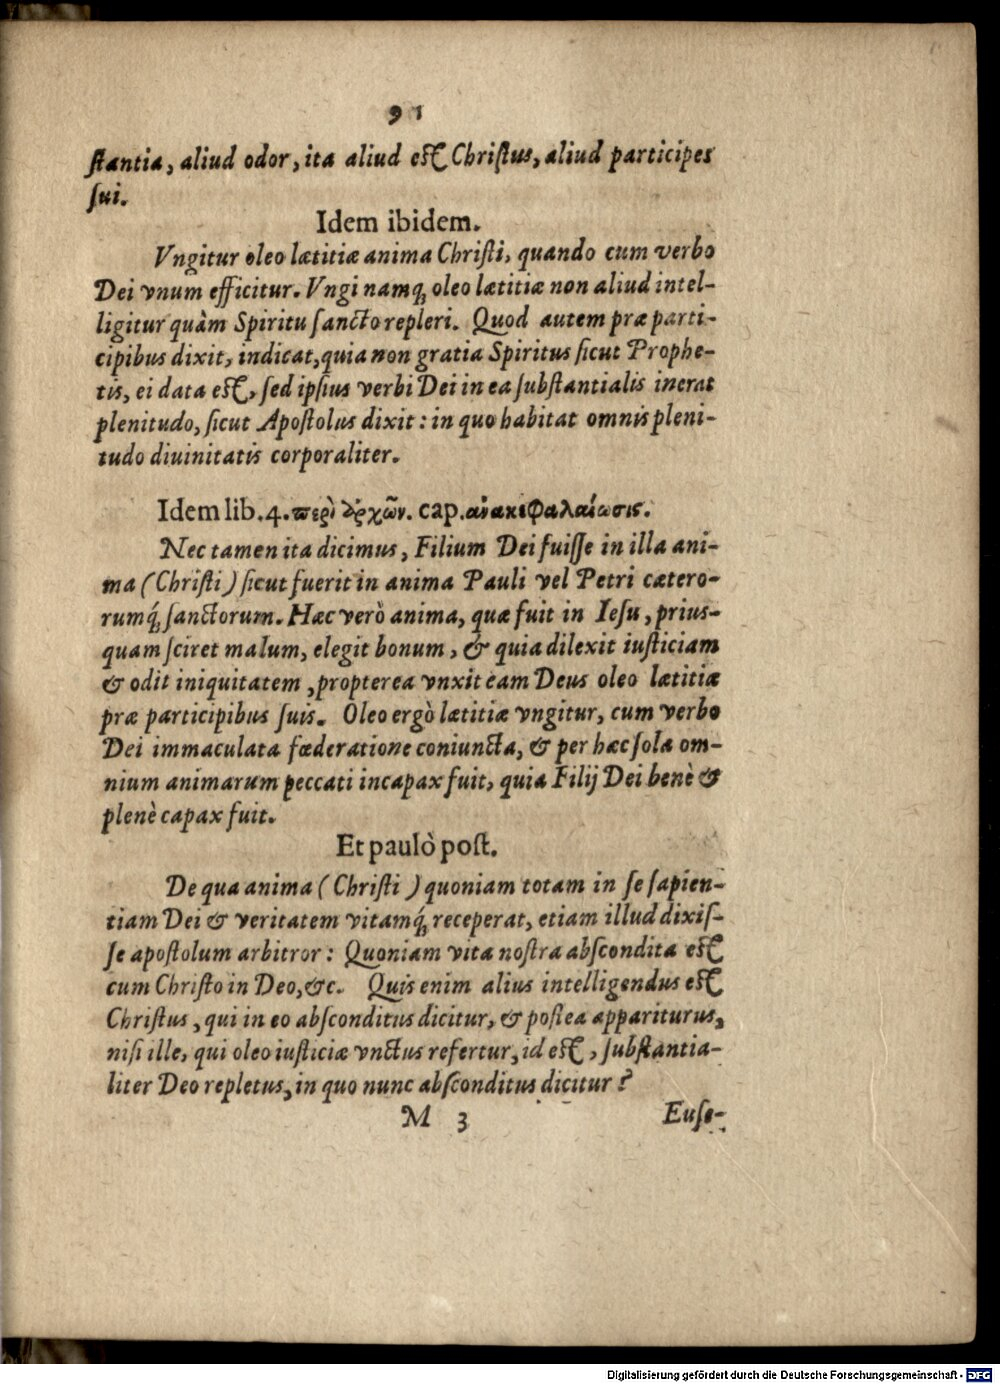 91
ſtantia, aliud odor, ita aliud eſt Chriſtus, aliud participes
ſui.
Idem ibidem.
Vngitur oleo lætitiæ anima Chriſti, quando cum verbo
Dei vnum efficitur. Vngi namq́; oleo lætitiæ non aliud intel-
ligitur quàm Spiritu ſancto repleri. Quod autem præ parti-
cipibus dixit, indicat, quia non gratia Spiritus ſicut Prophe-
tis, ei data eſt, ſed ipſius verbi Dei in ea ſubſtantialis inerat
plenitudo, ſicut Apoſtolus dixit: in quo habitat omnis pleni-
tudo diuinitatis corporaliter.
Idem lib. 4. περὶ ἀρχῶν. cap. ἀνακεφαλαίωσις.
Nec tamen ita dicimus, Filium Dei fuiſſe in illa ani-
ma (Chriſti) ſicut fuerit in anima Pauli vel Petri cætero-
rumq́; ſanctorum. Hæc verò anima, quæ fuit in Ieſu, prius-
quam ſciret malum, elegit bonum, & quia dilexit iuſticiam
& odit iniquitatem, propterea vnxit eam Deus oleo lætitiæ
præ participibus ſuis. Oleo ergò lætitiæ vngitur, cum verbo
Dei immaculata fœderatione coniuncta, & per hæc ſola om-
nium animarum peccati incapax fuit, quia Filij Dei benè &
plenè capax fuit.
Et paulò poſt.
De qua anima (Chriſti) quoniam totam in ſe ſapien-
tiam Dei & veritatem vitamq́; receperat, etiam illud dixiſ-
ſe apoſtolum arbitror: Quoniam vita noſtra abſcondita eſt
cum Chriſto in Deo, &c. Quis enim alius intelligendus eſt
Chriſtus, qui in eo abſconditus dicitur, & poſtea appariturus,
niſi ille, qui oleo iuſticiæ vnctus refertur, id eſt, ſubſtantia-
liter Deo repletus, in quo nunc abſconditus dicitur?
M 3 Euſe-
Digitalisierung gefördert durch die Deutsche Forschungsgemeinschaft - DFG